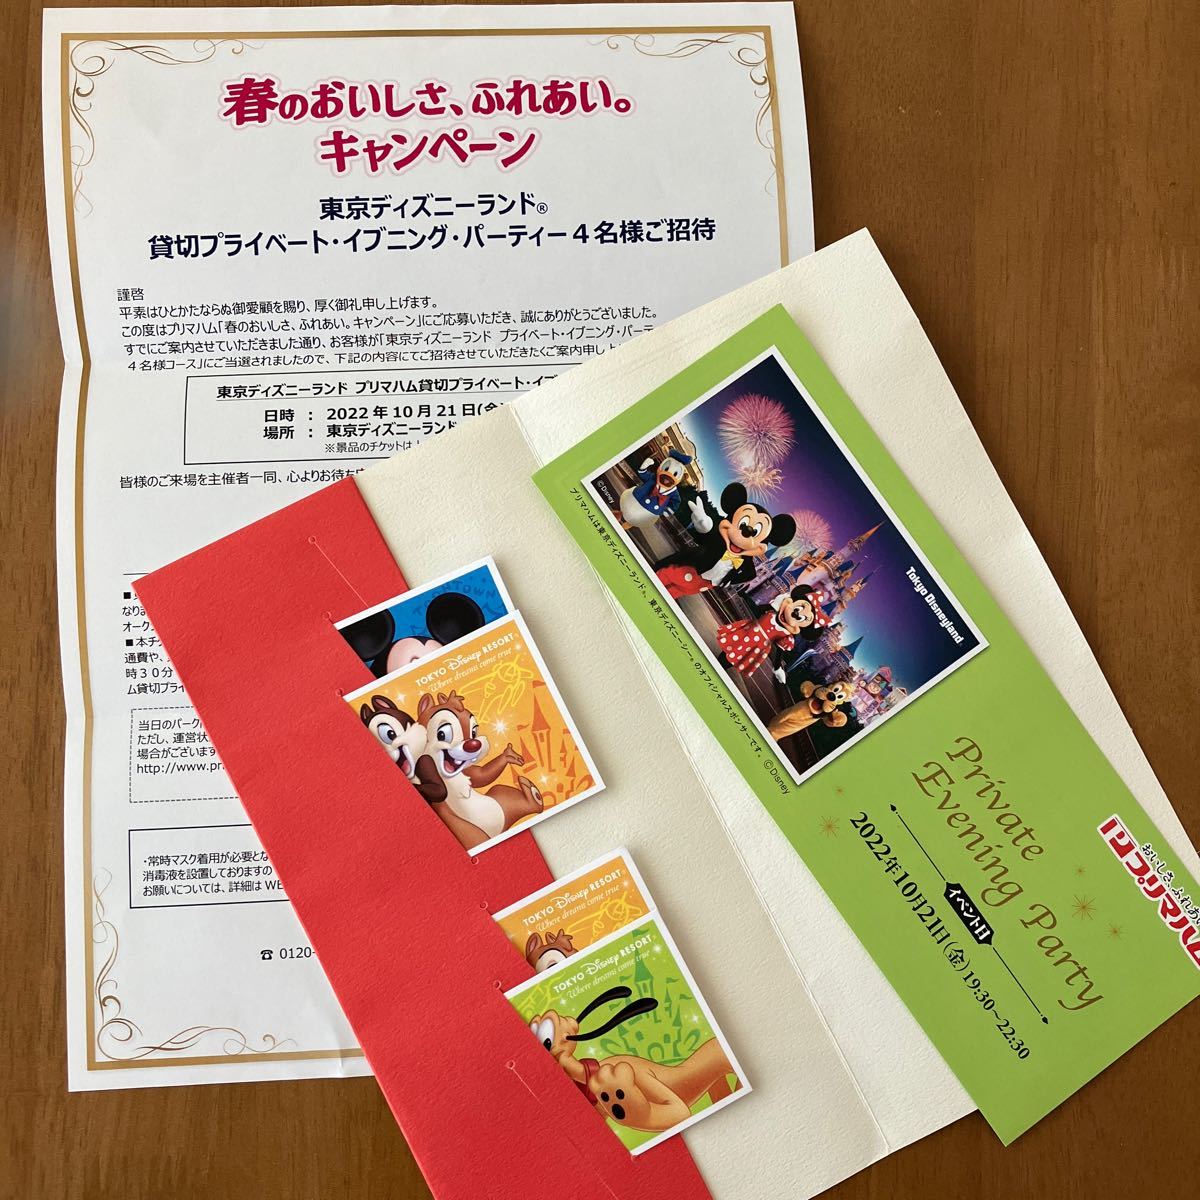 春のおいしさ、ふれあい。
キャンペーン
東京ディズニーランド®
貸切プライベート・イブニング・パーティー4名様ご招待
謹啓
平素はひとかたならぬ御愛顧を賜り、厚く御礼申し上げます。
この度はプリマハム「春のおいしさ、ふれあい。キャンペーン」にご応募いただき、誠にありがとうございました。
すでにご案内させていただきました通り、お客様が「東京ディズニーランド プライベート・イブニング・パーテ
4名様コース」にご当選されましたので、下記の内容にてご招待させていただきたくご案内申し上
東京ディズニーランド プリマハム貸切プライベート・イブ
日時 : 2022年10月21日(金)
場所 : 東京ディズニーランド
※景品のチケットは
皆様のご来場を主催者一同、心よりお待ち
なりま
オーク
■本チ
通費や、
時30分
ム貸切プライ
当日のパーク
ただし、運営状
場合がございます
http://www.pr
・常時マスク着用が必要とな
消毒液を設置しておりますの
お願いについては、詳細はWE
☎ 0120-
TOONTOWN
TOKYO Disney RESORT®
Where dreams come true
TOKYO Disney RESORT®
Where dreams come true
TOKYO Disney RESORT®
Where dreams come true
©Disney
Tokyo Disneyland®
プリマハムは東京ディズニーランド®、東京ディズニーシー®のオフィシャルスポンサーです。 ©Disney
Private
Evening Party
イベント日
2022年10月21日(金)19:30～22:30
おいしさ、ふれあい
プリマハム